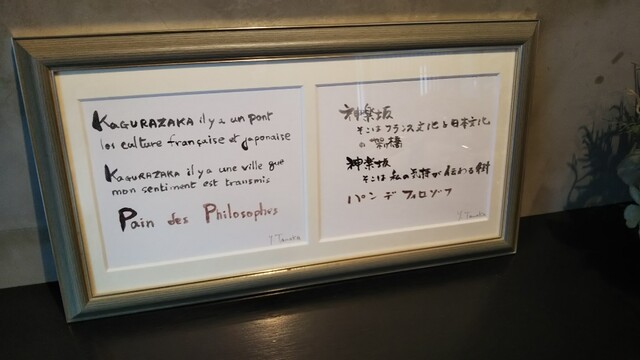 KAGURAZAKA il y a un pont
los culture française et japonaise
KAGURAZAKA il y a une ville que
mon sentiment est transmis
Pain des Philosophes
Y. Tanaka
神楽坂
そこはフランス文化と日本文化
の架け橋
神楽坂
そこは私の気持が伝わる街
パン デ フィロゾフ
Y. Tanaka